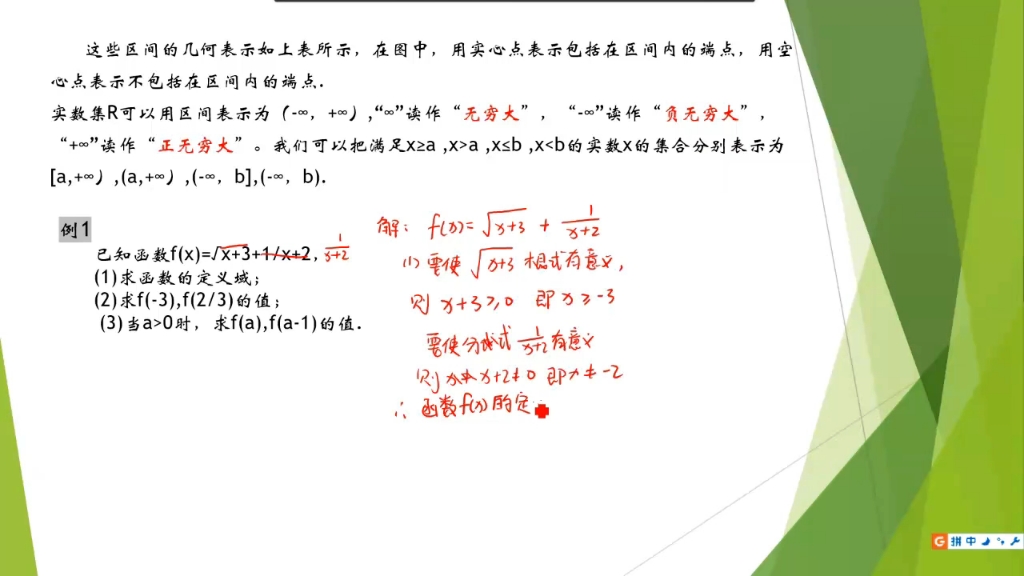 这些区间的几何表示如上表所示，在图中，用实心点表示包括在区间内的端点，用空
心点表示不包括在区间内的端点.
实数集R可以用区间表示为（-∞，+∞）,“∞”读作“无穷大”，“-∞”读作“负无穷大”，
“+∞”读作“正无穷大”。我们可以把满足x≥a ,x>a ,x≤b ,x<b的实数x的集合分别表示为
[a,+∞）,(a,+∞）,(-∞，b],(-∞，b).
例1
已知函数f(x)=√x+3+1/x+2, 1/x+2
(1)求函数的定义域;
(2)求f(-3),f(2/3)的值;
(3)当a>0时，求f(a),f(a-1)的值.
解: f(x)=√x+3 + 1/x+2
(1) 要使√x+3 根式有意义,
则 x+3≥0 即 x≥-3
要使分式 1/x+2 有意义
则 x+2≠0 即 x≠-2
∴ 函数f(x)的定
拼中